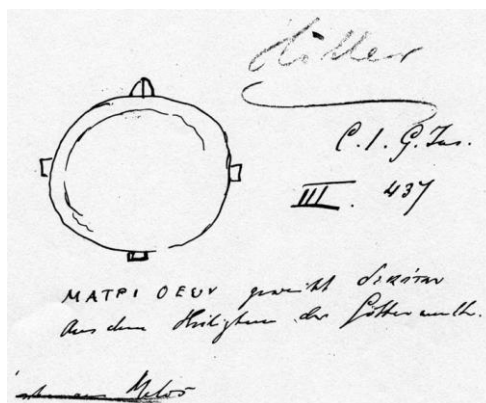 Hiller
C. I. G. Ins.
III. 437
ΜΑΤΡΙ ΘΕΩΝ geweiht δεκάταν
Aus dem Heiligtum der Göttermutter.
Melos